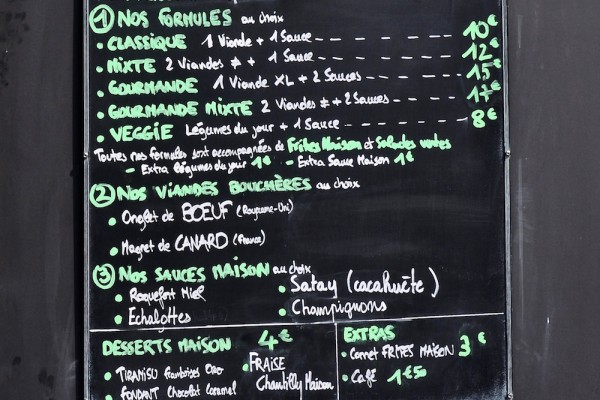 ① NOS FORMULES au choix
• CLASSIQUE 1 Viande + 1 Sauce 10€
• MIXTE 2 Viandes ≠ + 1 Sauce 12€
• GOURMANDE 1 Viande XL + 2 Sauces 15€
• GOURMANDE MIXTE 2 Viandes ≠ + 2 Sauces 17€
• VEGGIE Légumes du jour + 1 Sauce 8€
Toutes nos formules sont accompagnées de Frites Maison et Salades vertes
- Extra légumes du jour 1€ - Extra Sauce Maison 1€
② NOS VIANDES BOUCHÈRES au choix
• Onglet de BOEUF (Royaume-Uni)
• Magret de CANARD (France)
③ NOS SAUCES MAISON au choix
• Roquefort Miel • Satay (cacahuète)
• Echalottes • Champignons
DESSERTS MAISON 4€
• TIRAMISU framboises ORO
• FONDANT Chocolat Caramel
• FRAISE
Chantilly Maison
EXTRAS
• Cornet FRITES MAISON 3€
• Café 1€50